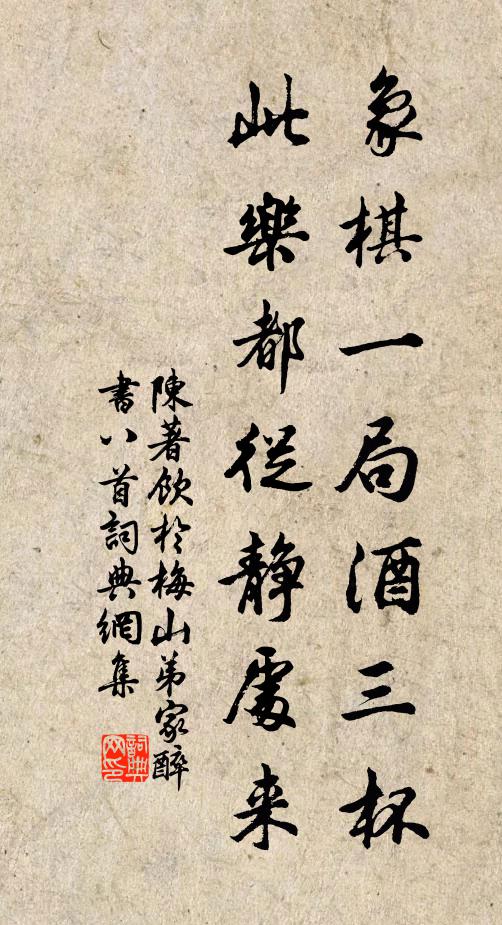 象棋一局酒三杯
此樂都從靜處来
陳著飲於梅山弟家醉
書八首詞典網集
詞典
网印